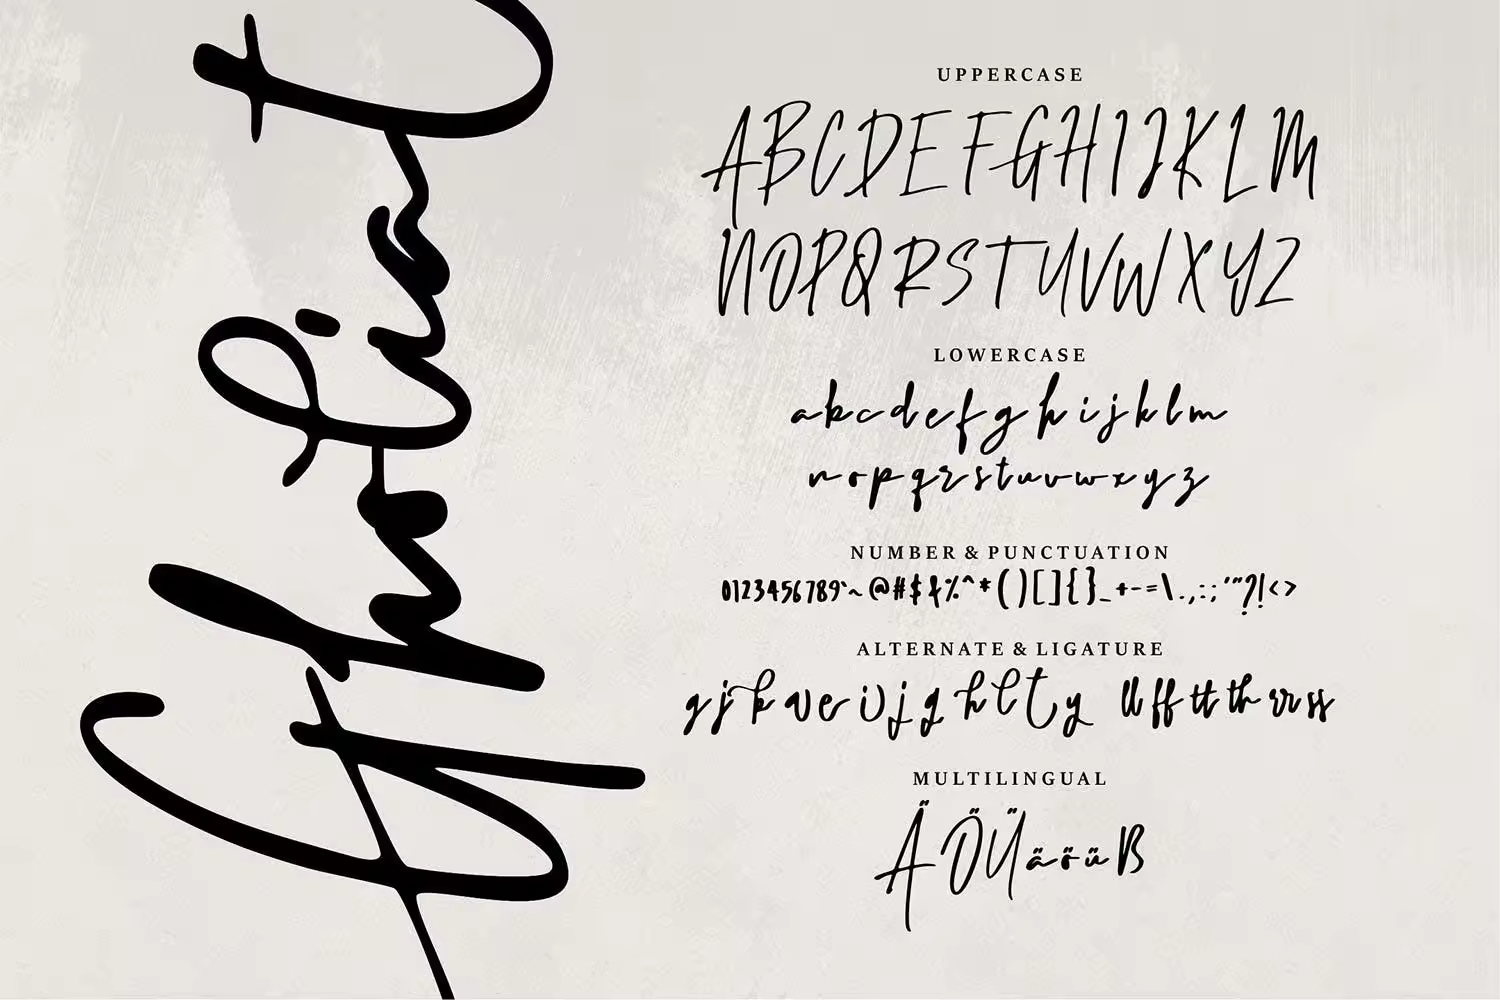 Ghotiat
UPPERCASE
ABCDEFGHIJKLM
NOPQRSTUVWXYZ
LOWERCASE
abcdefghijklm
nopqrstuvwxyz
NUMBER & PUNCTUATION
0123456789`~@#$&%^*()[]{}_+-=\.,:;'"?!<>
ALTERNATE & LIGATURE
gjkaverijghlty ll ff tt th rr ss
MULTILINGUAL
ÄÖÜäöüß